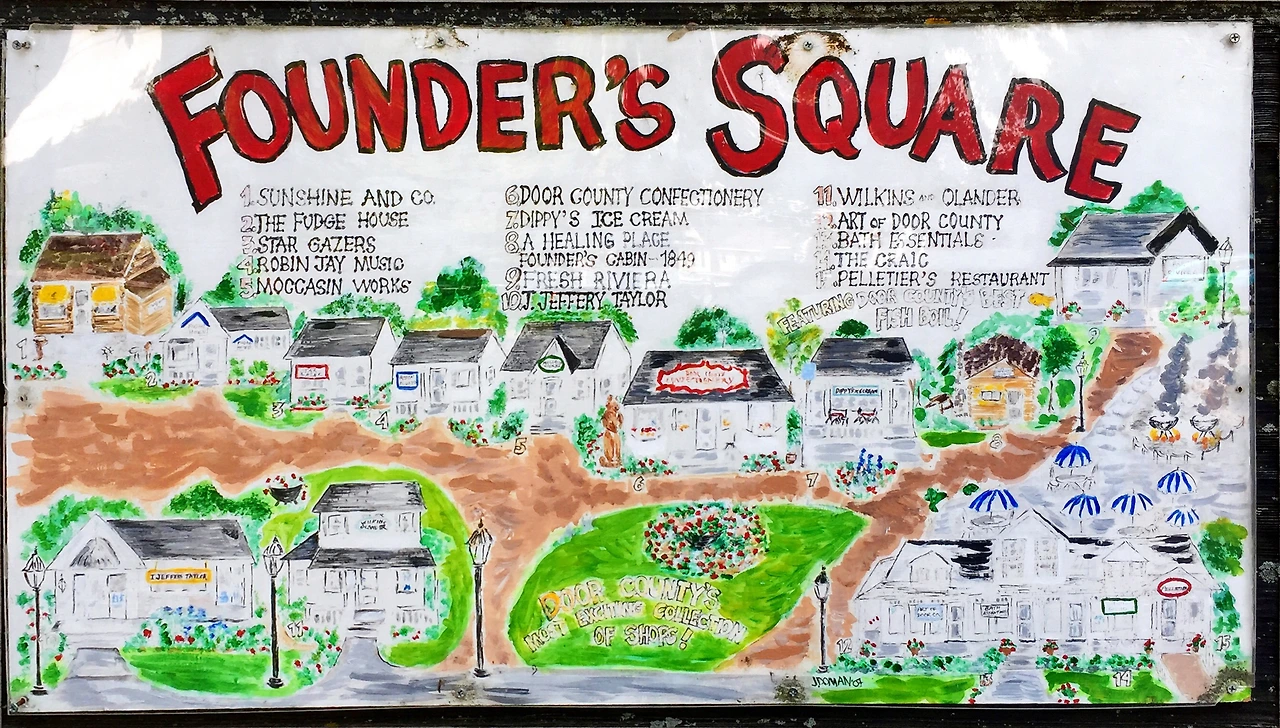 FOUNDER'S SQUARE
1. SUNSHINE AND CO.
2. THE FUDGE HOUSE
3. STAR GAZERS
4. ROBIN JAY MUSIC
5. MOCCASIN WORKS
6. DOOR COUNTY CONFECTIONERY
7. DIPPY'S ICE CREAM
8. A HEALING PLACE
FOUNDER'S CABIN--1849
9. FRESH RIVIERA
10. J. JEFFERY TAYLOR
11. WILKINS AND OLANDER
ART OF DOOR COUNTY
BATH ESSENTIALS
THE CRAIC
PELLETIER'S RESTAURANT
FEATURING DOOR COUNTY'S BEST
FISH BOIL!
1
2
3
4
5
6
7
8
9
CONFECTIONERY
DIPPY'S ICE CREAM
J. JEFFERY TAYLOR
11
DOOR COUNTY'S
MOST EXCITING COLLECTION
OF SHOPS!
ART OF
DOOR CO.
BATH
12
13
14
15
JDOMAN 07